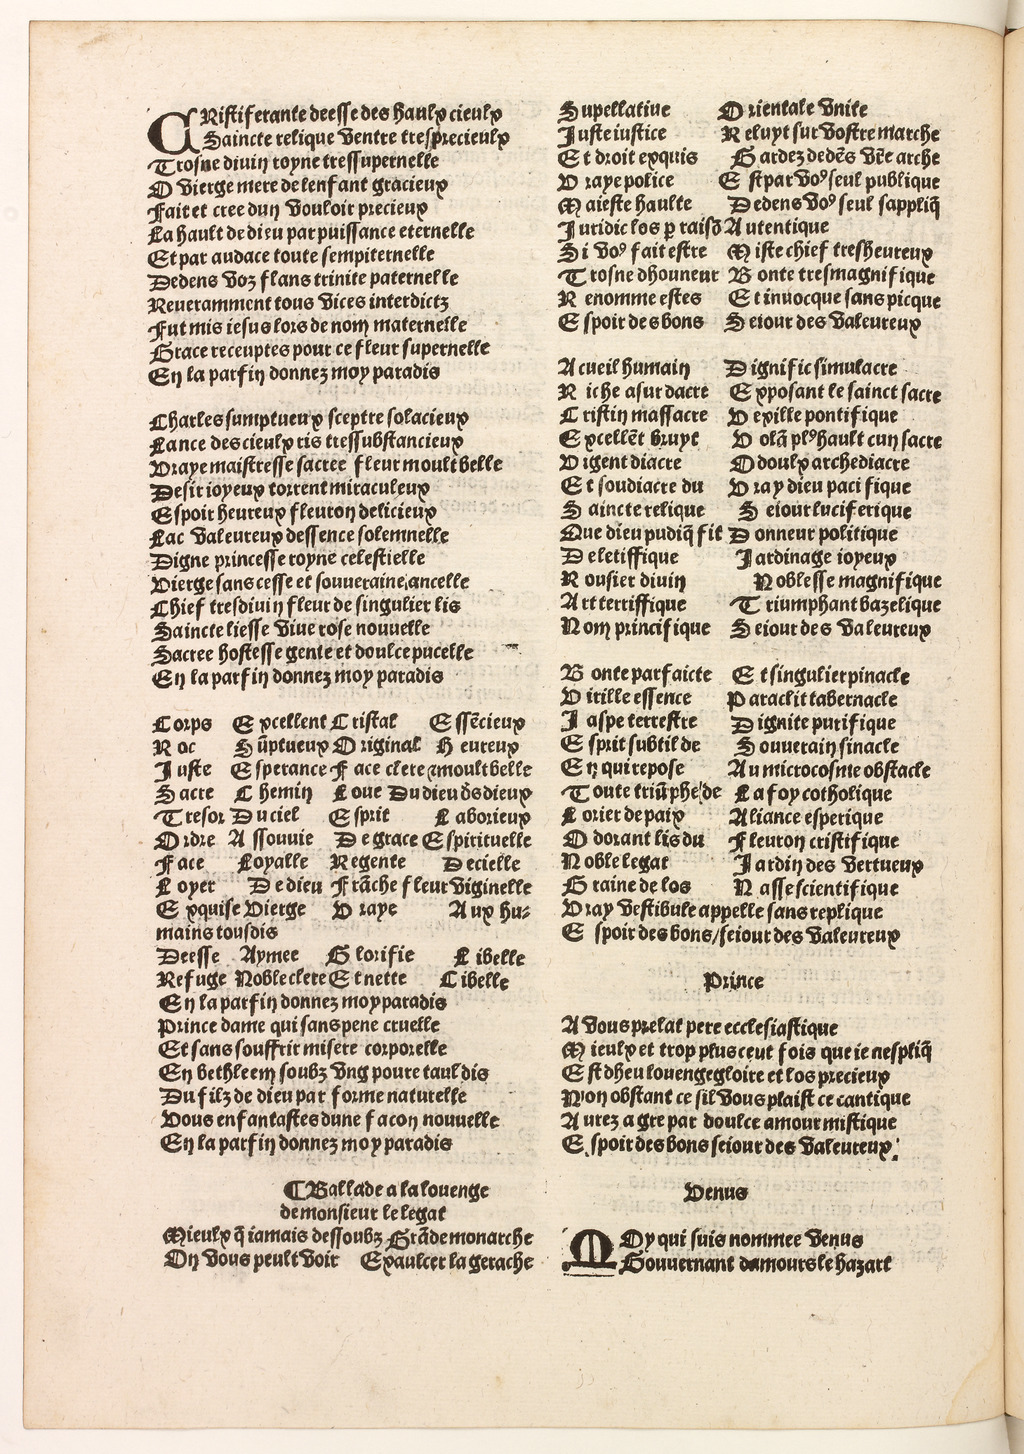 CRistiferante deesse des haulx cieulx
Saincte relique ventre tresprecieulx
Trosne divin royne tressupernelle
O vierge mere de lenfant gracieux
Fait et cree dun vouloir precieux
La hault de dieu par puissance eternelle
Et par audace toute sempiternelle
Dedens voz flans trinite paternelle
Reveramment tous vices interdictz
Fut mis iesus lors de nom maternelle
Grace receuptes pour ce fleur supernelle
En la parfin donnez moy paradis
Charles sumptueux sceptre solacieux
Lance des cieulx ris tressubstancieux
Vraye maistresse sacree fleur moult belle
Desir ioyeux torrent miraculeux
Espoir heureux fleuron delicieux
Lac valeureux dessence solemnelle
Digne princesse royne celestielle
Vierge sans cesse et souveraine ancelle
Chief tresdivin fleur de singulier lis
Saincte liesse vive rose nouvelle
Sacree hostesse gente et doulce pucelle
En la parfin donnez moy paradis
Corps Excellent Cristal Essēcieux
Roc Sūptueux Original Heureux
Juste Esperance Face clere ⁊ moult belle
Sacre Chemin Loue Du dieu ds dieux
Tresor Du ciel Esprit Laborieux
Ordre Assouvie De grace Espirituelle
Face Loyalle Regente Decielle
Loyer De dieu Frāche fleur viginelle
Exquise Vierge Vraye Aux hu-
mains tousdis
Deesse Aymee Glorifie Libelle
Refuge Noble clere Et nette Cibelle
En la parfin donnez moy paradis
Prince dame qui sans pene cruelle
Et sans souffrir misere corporelle
En bethleem soubz ung povre tauldis
Du filz de dieu par forme naturelle
Vous enfantastes dune facon nouvelle
En la parfin donnez moy paradis
¶ Ballade a la louenge
de monsieur le legat
Mieulx q̄ iamais dessoubz Grāde monarche
On vous peult voir Exaulcer la gerache
Supellative Orientale vnite
Juste iustice Reluyt sur vostre marche
Et droit exquis Gardez dedēs vr̄e arche
Vraye police Est par voꝰ seul publique
Maieste haulte Dedens voꝰ seul sappliq̄
Juridic los p raisō Autentique
Si voꝰ fait estre Miste chief tresheureux
Trosne dhonneur Bonte tresmagnifique
Renomme estes Et invocque sans picque
Espoir des bons Seiour des valeureux
Acueil humain Dignific simulacre
Riche asur dacre Exposant le sainct sacre
Cristin massacre Vexille pontifique
Excellēt bruyt Volā plꝰ hault cun sacre
Vrgent diacre Odoulx archediacre
Et soudiacre du Vray dieu pacifique
Saincte relique Seiour luciferique
Que dieu pudiq̄ fit Donneur politique
Deletiffique Jardinage ioyeux
Rousier divin Noblesse magnifique
Art terriffique Triumphant bazelique
Nom principique Seiour des valeureux
Bonte parfaicte Et singulier pinacle
Virille essence Paraclit tabernacle
Jaspe terrestre Dignite purifique
Esprit subtil de Souverain sinacle
En qui repose Au microcosme obstacle
Toute triūphe de La foy cotholique
Lorier de paix Aliance esperique
Odorant lis du Fleuron cristifique
Noble legat Jardin des vertueux
Graine de los Nasse scientifique
Vray vestibule appelle sans replique
Espoir des bons/seiour des valeureux
Prince
A vous prelat pere ecclesiastique
Mieulx et trop plus ceut fois que ie nespliq̄
Est dheu louenge gloire et los precieux
Non obstant ce sil vous plaist ce cantique
Aurez a gre par doulce amour mistique
Espoir des bons seiour des valeureux.
Venus
MOy qui suis nommee Venus
Gouvernant damours le hazart